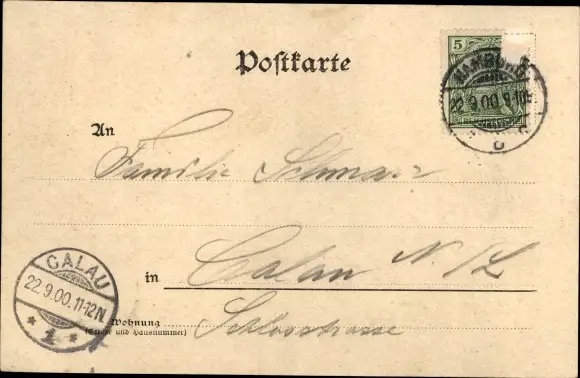 Postkarte
5
HAMBURG
22.9.00.8-10
An
Familie Schwarz
in
Calau N./L.
CALAU
22.9.00.11-12N
* 1 *
Wohnung
(Straße und Hausnummer)
Schlossstrasse